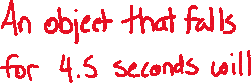 An object that falls
for 4.5 seconds will